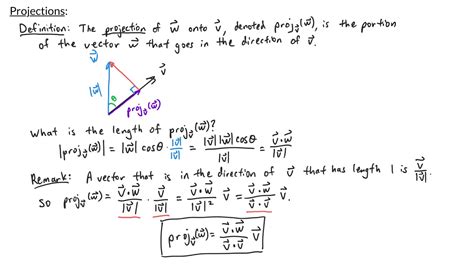 Projections:
Definition: The projection of w⃗ onto v⃗, denoted proj_v⃗(w⃗), is the portion
of the vector w⃗ that goes in the direction of v⃗.
w⃗
v⃗
|w⃗|
θ
proj_v⃗(w⃗)
What is the length of proj_v⃗(w⃗)?
|proj_v⃗(w⃗)| = |w⃗| cosθ · |v⃗|/|v⃗| = |v⃗||w⃗| cosθ/|v⃗| = v⃗·w⃗/|v⃗|
Remark: A vector that is in the direction of v⃗ that has length 1 is v⃗/|v⃗|.
So proj_v⃗(w⃗) = v⃗·w⃗/|v⃗| · v⃗/|v⃗| = v⃗·w⃗/|v⃗|² v⃗ = v⃗·w⃗/v⃗·v⃗ v⃗.
proj_v⃗(w⃗) = v⃗·w⃗/v⃗·v⃗ v⃗